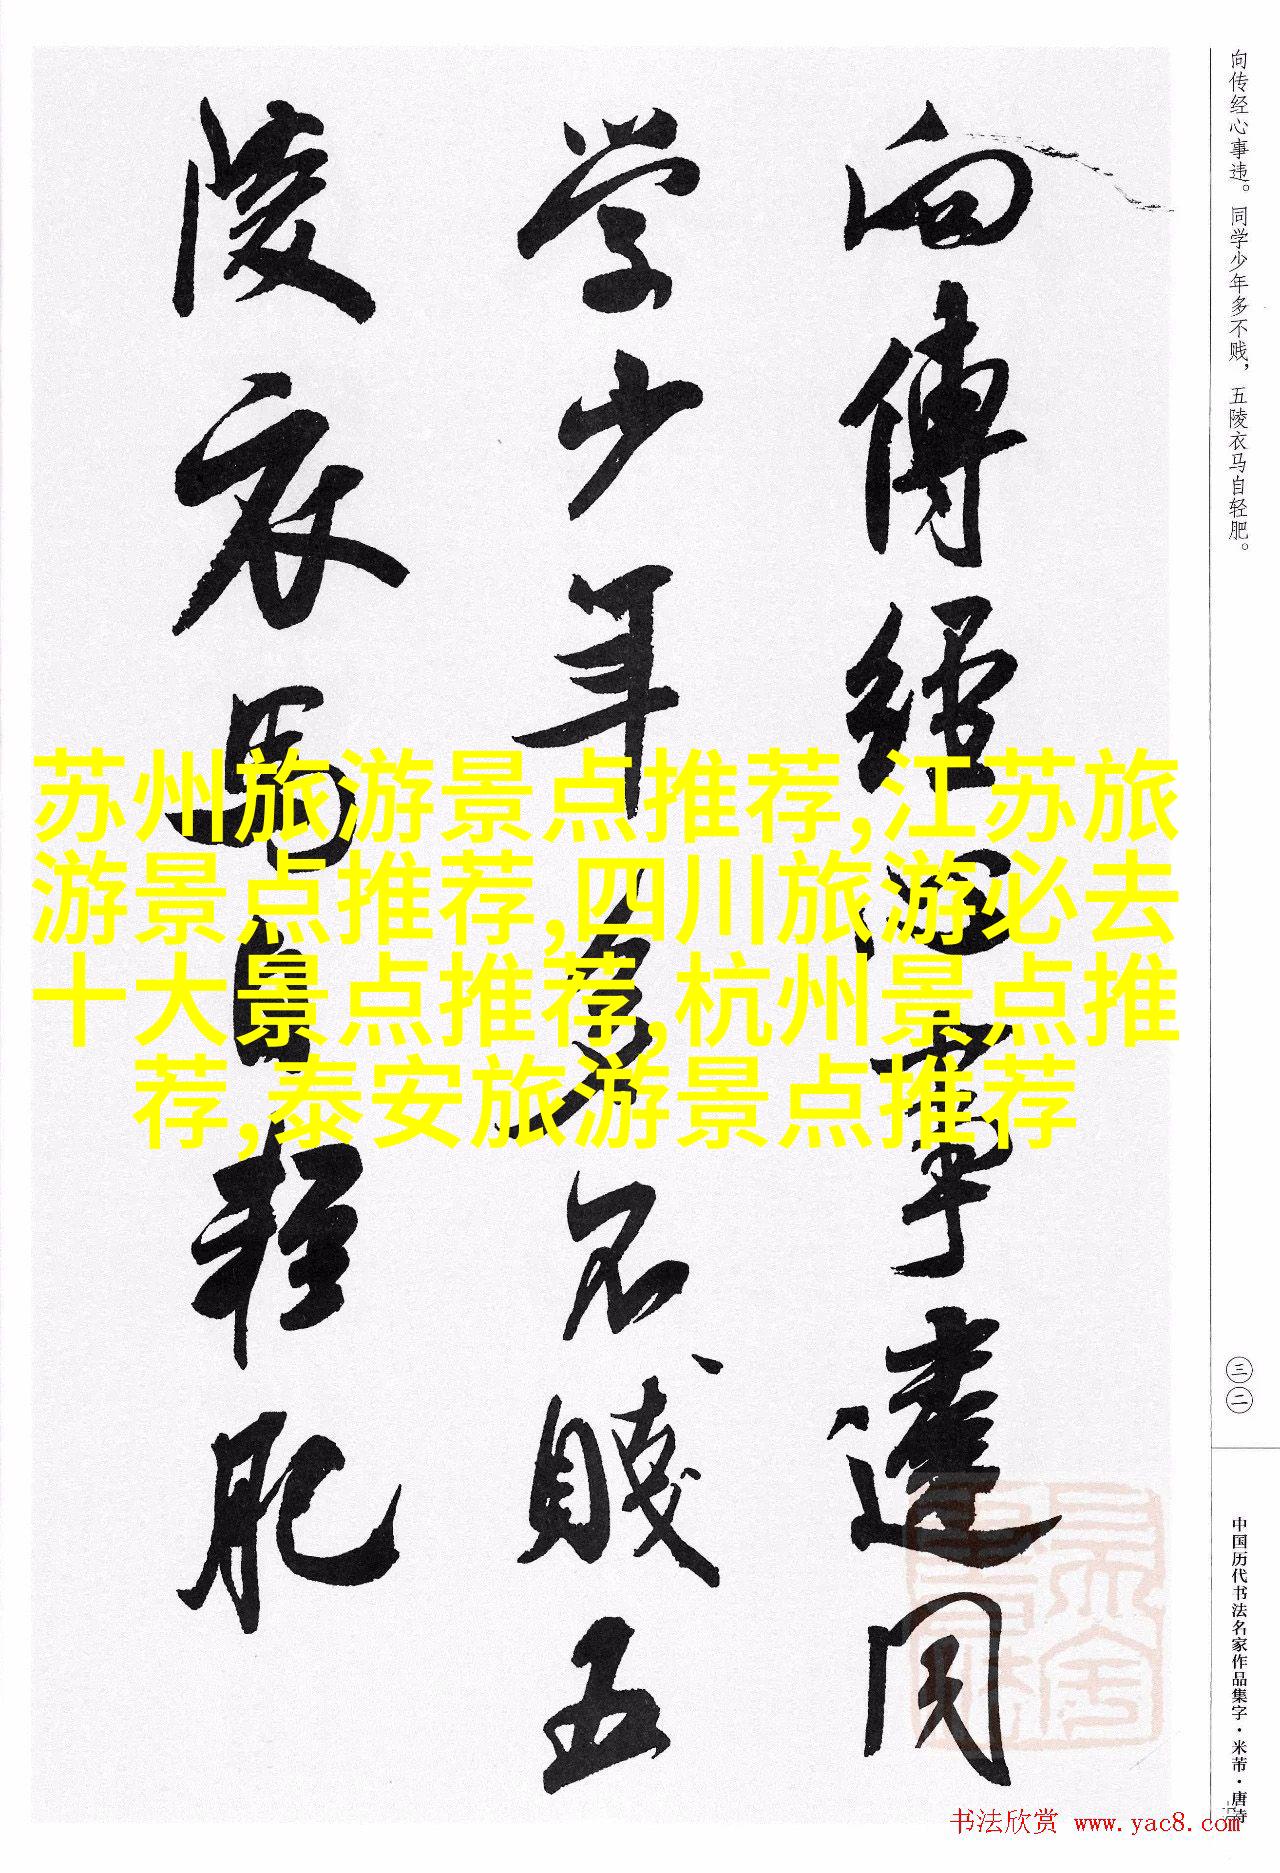 向传经心事违。同学少年多不贱，五陵衣马自轻肥。
三二
中国历代书法名家作品集字·米芾·唐诗
向傳經心事違同
学少年多不賤五
陵衣馬自輕肥
苏州旅游景点推荐,江苏旅
游景点推荐,四川旅游必去
十大景点推荐,杭州景点推
荐,泰安旅游景点推荐
书法欣赏 www.yac8.com